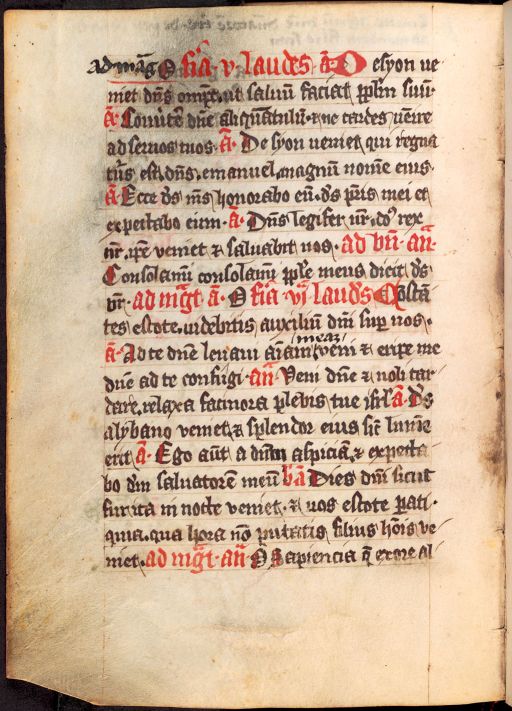 ad mag̃ O fīa v laudes ā De syon ve
niet dn̄s omp̄s ut saluū faciat pplm̄ suū·
ā Convte dn̄e aliquātulū·et ne tardes uēire
ad servos tuos· ā De syon veniet qui regna
tur᷒ est dn̄s, emanuel, magnū nomē eius·
ā Ecce ds̄ ms̄ honorabo eū· ds̄ pr̄is mei et
expectabo eum· ā Dn̄s legifer nr̄· dn̄s rex
nr̄ ip̄e veniet et salvabit nos· ad bn̄· añ·
Consolamī consolamī pple meus dicit ds̄
vr̄· ad mag̃t ā· O fīa vj laudes Constā
tes estote, videbitis auxiliū dn̄i sup nos·
ā· Ad te dn̄e levavi aīam meaꝫ veni et eripe me
dn̄e ad te confugi· añ· Veni dn̄e et noli tar
dare, relaxa facinora plebis tue isrl̄ ā· Ds̄
a lybano veniet, et splendor eius sic̄ lumē
erit ā· Ego aūt ad dn̄m aspiciā, et expecta
bo dm̄ salvatorē meū bā Dies dn̄i sicut
fur ita in nocte veniet· et vos estote pati·
quia qua hora nō putatis filius hoīs ve
niet· ad mag̃t· añ· O Sapiencia q̄ ex ore al